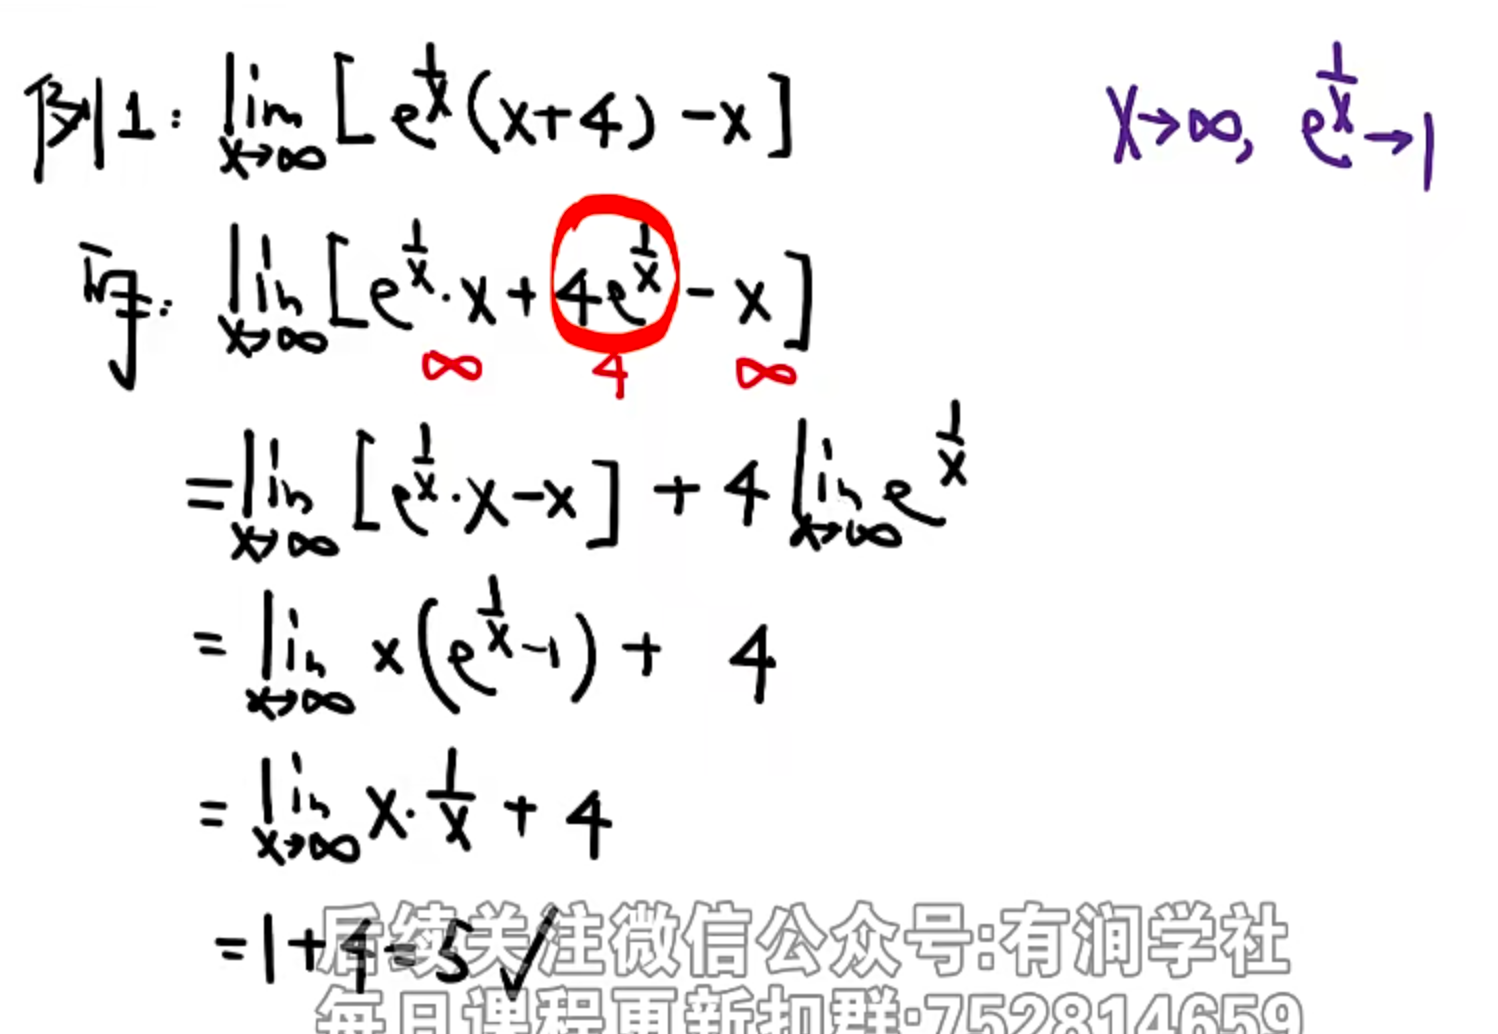 例1: lim x→∞ [ e^{1/x} (x+4) - x ]
x→∞, e^{1/x} → 1
lim x→∞ [ e^{1/x} · x + 4e^{1/x} - x ]
∞ 4 ∞
= lim x→∞ [ e^{1/x} · x - x ] + 4 lim x→∞ e^{1/x}
= lim x→∞ x ( e^{1/x} - 1 ) + 4
= lim x→∞ x · 1/x + 4
= 1 + 4 = 5 ✓
后续关注微信公众号:有润学社
每日课程更新扣群:752814659